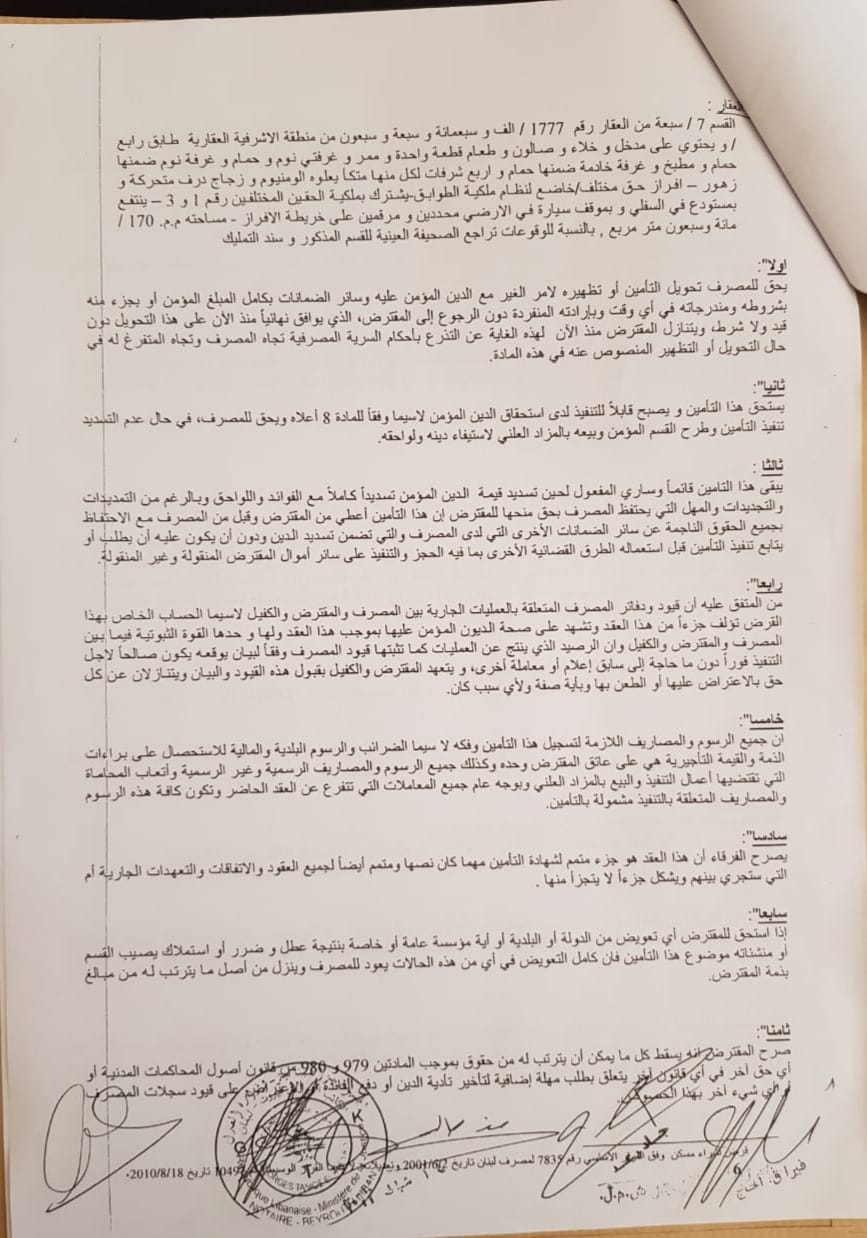 العقار :
القسم 7 / سبعة من العقار رقم 1777 / الف و سبعمائة و سبعة و سبعون من منطقة الاشرفية العقارية طابق رابع
/ و يحتوي على مدخل و خلاء و صالون و طعام قطعة واحدة و ممر و غرفتي نوم و حمام و غرفة نوم ضمنها
حمام و مطبخ و غرفة خادمة ضمنها حمام و اربع شرفات لكل منها متكأ يعلوه الومنيوم و زجاج درف متحركة و
زهور – افراز حق مختلف/خاضع لنظام ملكية الطوابق-يشترك بملكية الحقين المختلفين رقم 1 و 3 – ينتفع
بمستودع في السفلي و بموقف سيارة في الارضي محددين و مرقمين على خريطة الافراز - مساحته م.م. 170 /
مائة وسبعون متر مربع , بالنسبة للوقوعات تراجع الصحيفة العينية للقسم المذكور و سند التمليك
اولا":
يحق للمصرف تحويل التأمين أو تظهيره لامر الغير مع الدين المؤمن عليه وسائر الضمانات بكامل المبلغ المؤمن أو بجزء منه
بشروطه ومندرجاته في أي وقت وبإرادته المنفردة دون الرجوع إلى المقترض، الذي يوافق نهائياً منذ الآن على هذا التحويل دون
قيد ولا شرط، ويتنازل المقترض منذ الآن لهذه الغاية عن التذرع بأحكام السرية المصرفية تجاه المصرف وتجاه المتفرغ له في
حال التحويل أو التظهير المنصوص عنه في هذه المادة.
ثانيا":
يستحق هذا التأمين و يصبح قابلاً للتنفيذ لدى استحقاق الدين المؤمن لاسيما وفقاً للمادة 8 أعلاه ويحق للمصرف، في حال عدم التسديد
تنفيذ التأمين وطرح القسم المؤمن وبيعه بالمزاد العلني لاستيفاء دينه ولواحقه.
ثالثا :
يبقى هذا التامين قائماً وساري المفعول لحين تسديد قيمة الدين المؤمن تسديداً كاملاً مع الفوائد واللواحق وبالرغم من التمديدات
والتجديدات والمهل التي يحتفظ المصرف بحق منحها للمقترض إن هذا التأمين أعطي من المقترض وقبل من المصرف مع الاحتفاظ
بجميع الحقوق الناجمة عن سائر الضمانات الأخرى التي لدى المصرف والتي تضمن تسديد الدين ودون أن يكون عليه أن يطلب أو
يتابع تنفيذ التأمين قبل استعماله الطرق القضائية الأخرى بما فيه الحجز والتنفيذ على سائر أموال المقترض المنقولة وغير المنقولة.
رابعا":
من المتفق عليه أن قيود ودفاتر المصرف المتعلقة بالعمليات الجارية بين المصرف والمقترض والكفيل لاسيما الحساب الخاص بهذا
القرض تؤلف جزءاً من هذا العقد وتشهد على صحة الديون المؤمن عليها بموجب هذا العقد ولها و حدها القوة الثبوتية فيما بين
المصرف والمقترض والكفيل وان الرصيد الذي ينتج عن العمليات كما تثبتها قيود المصرف وفقاً لبيان يوقعه يكون صالحاً لاجل
التنفيذ فوراً دون ما حاجة إلى سابق إعلام أو معاملة أخرى، و يتعهد المقترض والكفيل بقبول هذه القيود والبيان ويتنازلان عن كل
حق بالاعتراض عليها أو الطعن بها وبأية صفة ولأي سبب كان.
خامسا":
ان جميع الرسوم والمصاريف اللازمة لتسجيل هذا التأمين وفكه لا سيما الضرائب والرسوم البلدية والمالية للاستحصال على براءات
الذمة والقيمة التأجيرية هي على عاتق المقترض وحده وكذلك جميع الرسوم والمصاريف الرسمية وغير الرسمية وأتعاب المحاماة
التي تقتضيها أعمال التنفيذ والبيع بالمزاد العلني وبوجه عام جميع المعاملات التي تتفرع عن العقد الحاضر وتكون كافة هذه الرسوم
والمصاريف المتعلقة بالتنفيذ مشمولة بالتأمين.
سادسا":
يصرح الفرقاء أن هذا العقد هو جزء متمم لشهادة التأمين مهما كان نصها ومتمم أيضاً لجميع العقود والاتفاقات والتعهدات الجارية أم
التي ستجري بينهم ويشكل جزءاً لا يتجزأ منها .
سابعا":
إذا استحق للمقترض أي تعويض من الدولة أو البلدية أو أية مؤسسة عامة أو خاصة بنتيجة عطل و ضرر أو استملاك يصيب القسم
أو منشئاته موضوع هذا التأمين فان كامل التعويض في أي من هذه الحالات يعود للمصرف وينزل من أصل ما يترتب له من مبالغ
بذمة المقترض.
ثامنا":
صرح المقترض انه يسقط كل ما يمكن أن يترتب له من حقوق بموجب المادتين 979 و 980 من قانون أصول المحاكمات المدنية أو
أي حق آخر في أي قانون آخر يتعلق بطلب مهلة إضافية لتأخير تأدية الدين أو دفع الفائدة أو الاعتراض على قيود سجلات المصرف
أو أي شيء آخر بهذا الخصوص.
قرض شراء مسكن وفق القرار الأساسي رقم 7835 لمصرف لبنان تاريخ 2001/6/2 10497 تاريخ 2010/8/18.
6
ش.م.ل.
NOTAIRE - BEYROUTH